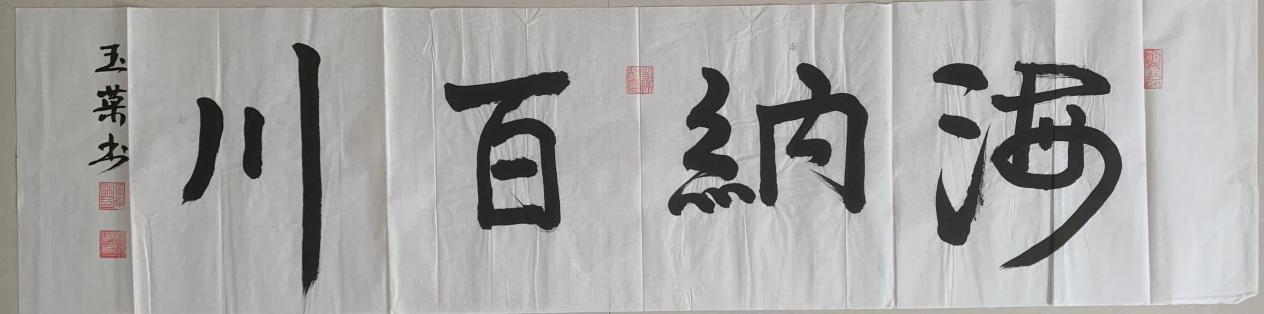 海納百川
玉葉书